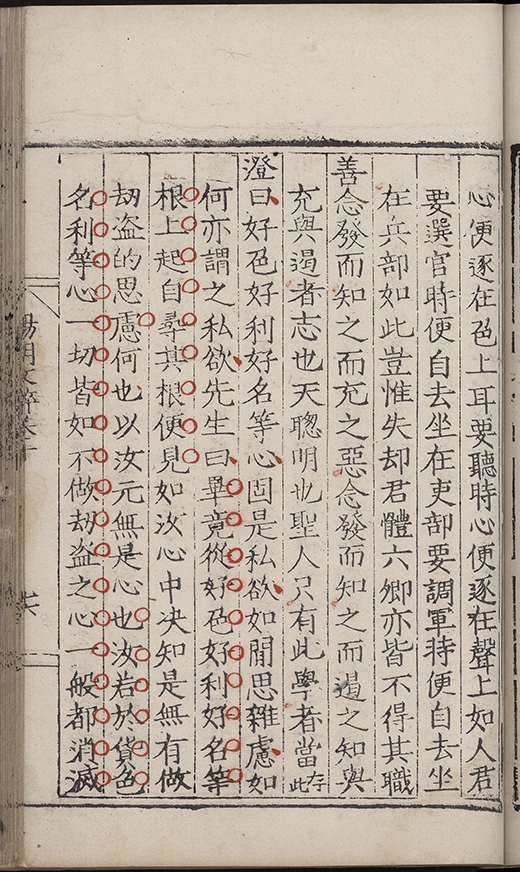 心便逐在色上耳要聽時心便逐在聲上如人君
要選官時便自去坐在吏部要調軍時便自去坐
在兵部如此豈惟失却君體六卿亦皆不得其職
善念發而知之而充之惡念發而知之而遏之知與
充與遏者志也天聰明也聖人只有此學者當存此
澄曰好色好利好名等心固是私欲如閒思雜慮如
何亦謂之私欲先生曰畢竟從好色好利好名等
根上起自尋其根便見如汝心中決知是無有做
劫盜的思慮何也以汝元無是心也汝若於貨色
名利等心一切皆如不做劫盜之心一般都消滅
陽明文粹卷十